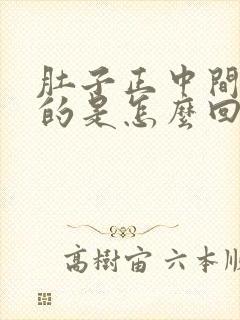 肚子正中間
的是怎麼回
高樹宙 六本順